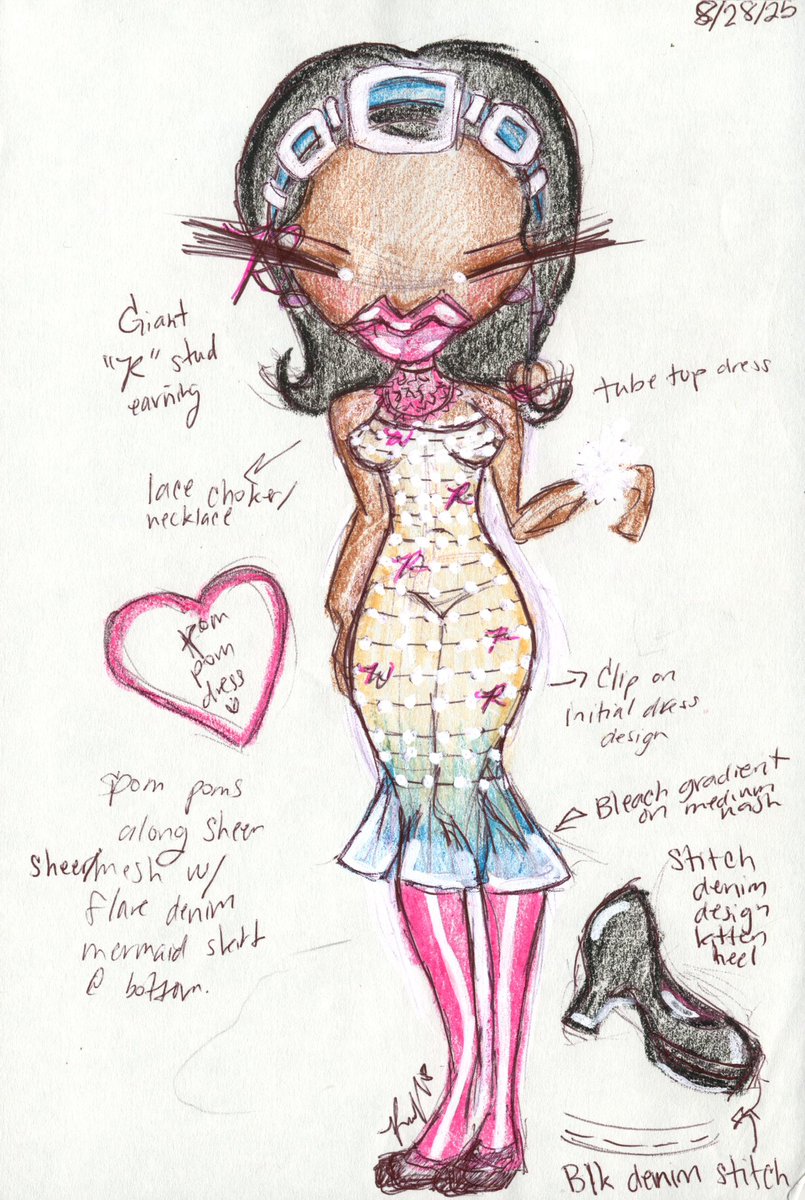 8/28/25
Giant
"R" stud
earring
tube top dress
lace choker/
necklace
Pom
pom
dress
Clip on
initial dress
design
Bleach gradient
on medium
wash
Pom poms
along sheer
sheer/mesh w/
flare denim
mermaid skirt
@ bottom.
Stitch
denim
design
kitten
heel
Blk denim stitch
R
R
R
R